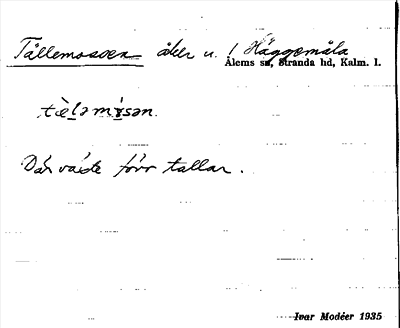 Tållemossen åker u. 1 Häggemåla
Ålems sn, Stranda hd, Kalm. l.
tὲlamɷ̀san.
Där växte förr tallar.
Ivar Modéer 1935